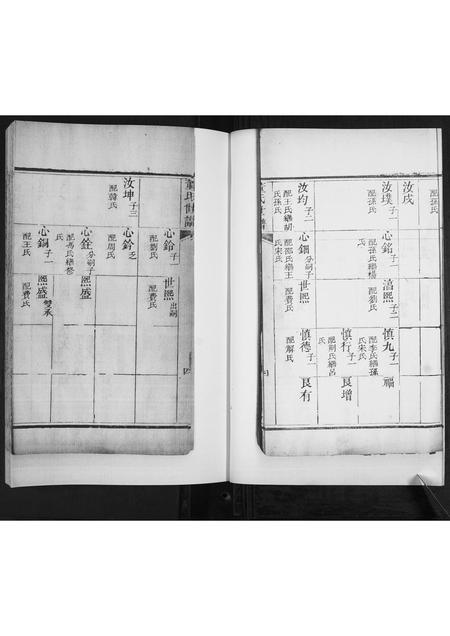 配孫氏
汝戌
汝璞 子一
配孫氏
心銘 子一
配孫氏繼楊
氏
浩熙 子二
配劉氏
慎九 子一
配李氏繼孫
氏宋氏
福
慎行 子一
配荊氏繼呂
氏
良增
汝均 子二
配王氏繼胡
氏孫氏
心鋼 分嗣子
配邵氏繼王
氏宋氏
世熙
配費氏
慎德 子一
配解氏
良有
董氏世譜
心鈴 子一
配劉氏
世熙 出嗣
配費氏
汝坤 子三
配韓氏
心鈴 乏
配周氏
心銓 分嗣子
配馬氏繼詹
氏
熙盛
心銅 子一
配王氏
熙盛 雙承
配費氏